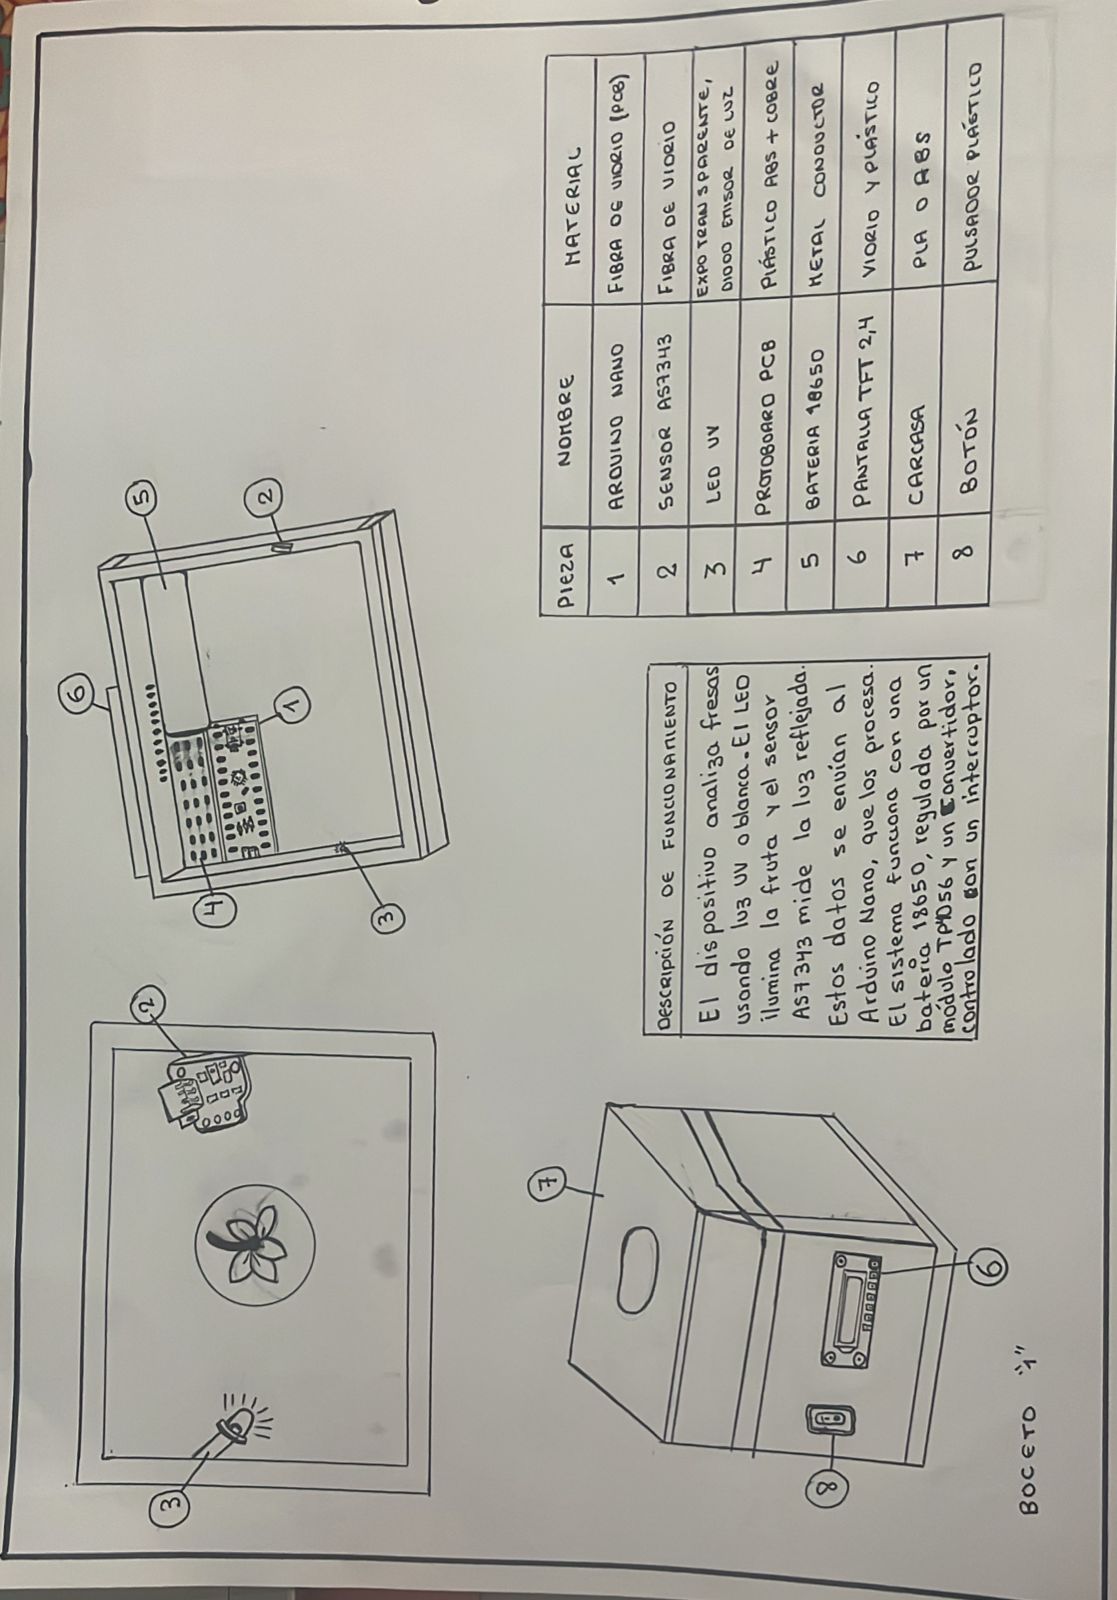 3
2
4
6
1
5
2
7
8
6
BOCETO "1"
DESCRIPCIÓN DE FUNCIONAMIENTO
El dispositivo analiza fresas
usando luz UV o blanca. El LED
ilumina la fruta y el sensor
AS7343 mide la luz reflejada.
Estos datos se envían al
Arduino Nano, que los procesa.
El sistema funciona con una
batería 18650, regulada por un
módulo TP4056 y un convertidor,
controlado con un interruptor.
PIEZA NOMBRE MATERIAL
1 ARDUINO NANO FIBRA DE VIDRIO (PCB)
2 SENSOR AS7343 FIBRA DE VIDRIO
3 LED UV EXPO TRANSPARENTE,
DIODO EMISOR DE LUZ
4 PROTOBOARD PCB PLÁSTICO ABS + COBRE
5 BATERIA 18650 METAL CONDUCTOR
6 PANTALLA TFT 2,4 VIDRIO Y PLÁSTICO
7 CARCASA PLA O ABS
8 BOTÓN PULSADOR PLÁSTICO